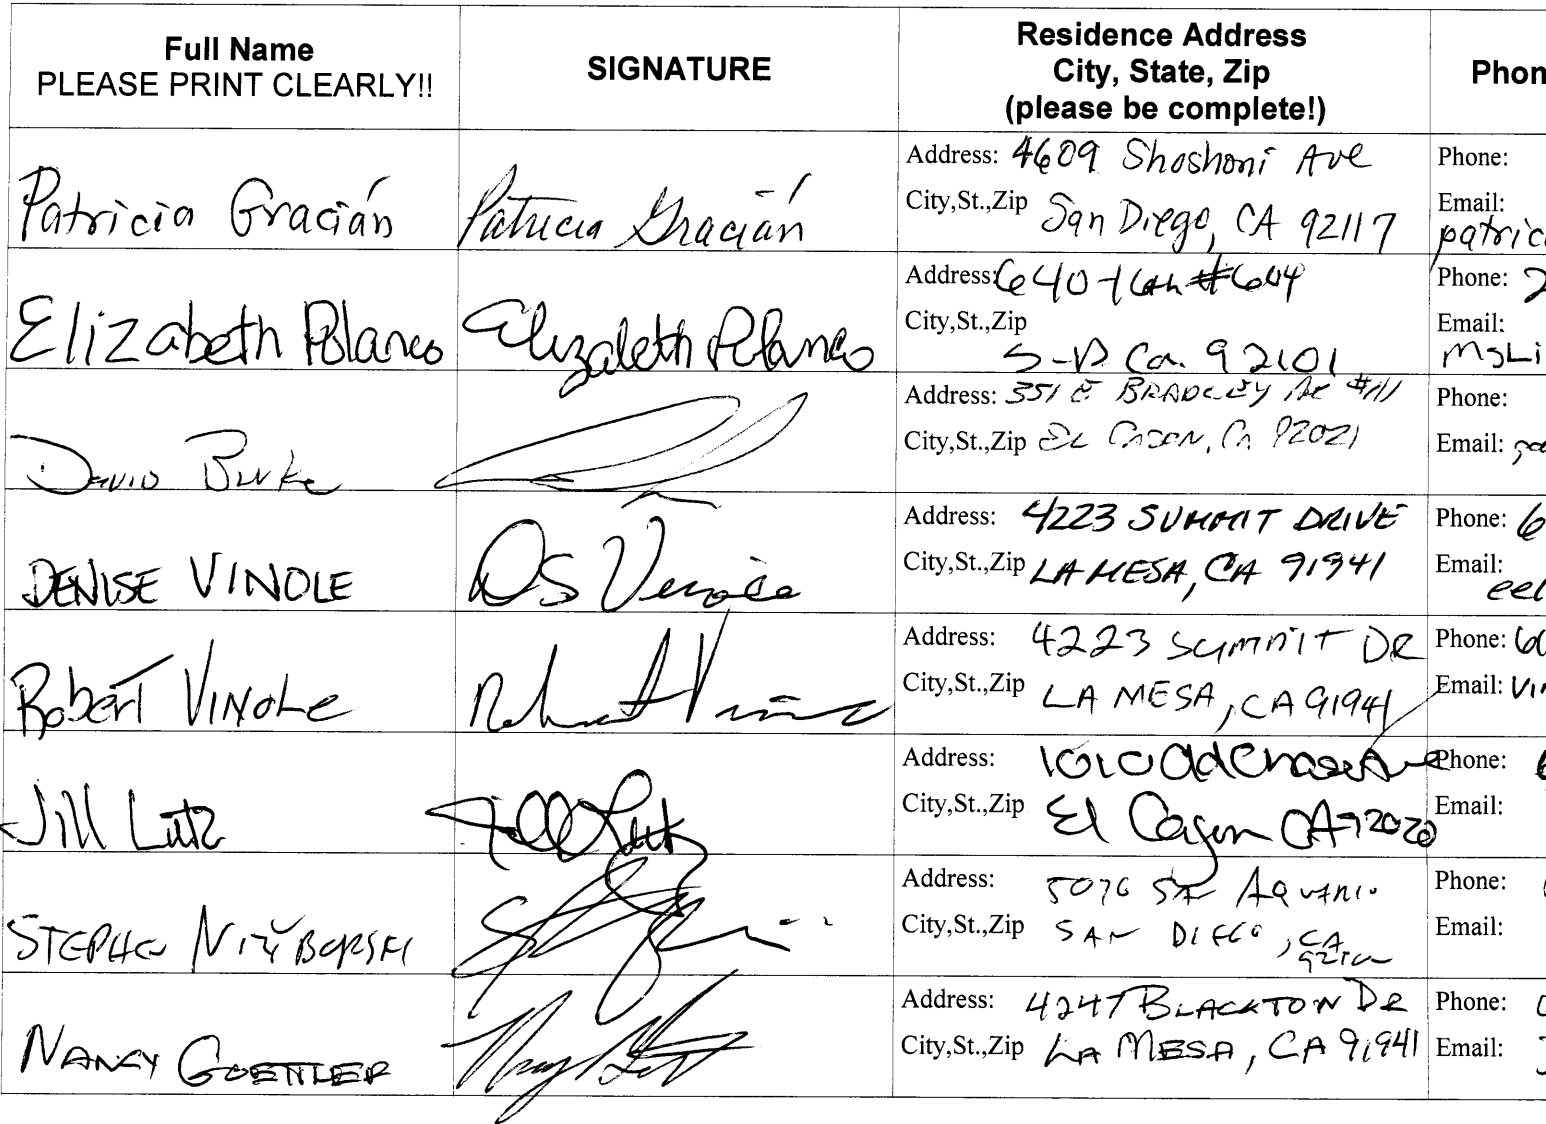 Full Name
PLEASE PRINT CLEARLY!!
SIGNATURE
Residence Address
City, State, Zip
(please be complete!)
Phon
Patricia Gracián
Patricia Gracián
Address: 4609 Shoshoni Ave
City,St.,Zip San Diego, CA 92117
Phone:
Email:
patric
Elizabeth Polanco
Elizabeth Polanco
Address: 640-16th #604
City,St.,Zip
S-D Ca. 92101
Phone: 2
Email:
MsLi
David Burke
Address: 351 E BRADLEY Ave #111
City,St.,Zip EL CAJON, Ca 92021
Phone:
Email:
DENISE VINOLE
DS Vinole
Address: 4223 SUMMIT DRIVE
City,St.,Zip LA MESA, CA 91941
Phone: 6
Email:
eel
Robert VINOLE
Robert Vinole
Address: 4223 SUMMIT DR
City,St.,Zip LA MESA, CA 91941
Phone: 6
Email: Vin
Jill Lutz
Jill Lutz
Address: 1010 Old Chase Ave
City,St.,Zip El Cajon CA 92020
Phone: 6
Email:
STEPHEN
Address: 5076
City,St.,Zip SAN DIEGO, CA
Phone:
Email:
NANCY GOETTLER
Address: 4247 BLACKTON DR
City,St.,Zip LA MESA, CA 91941
Phone:
Email: